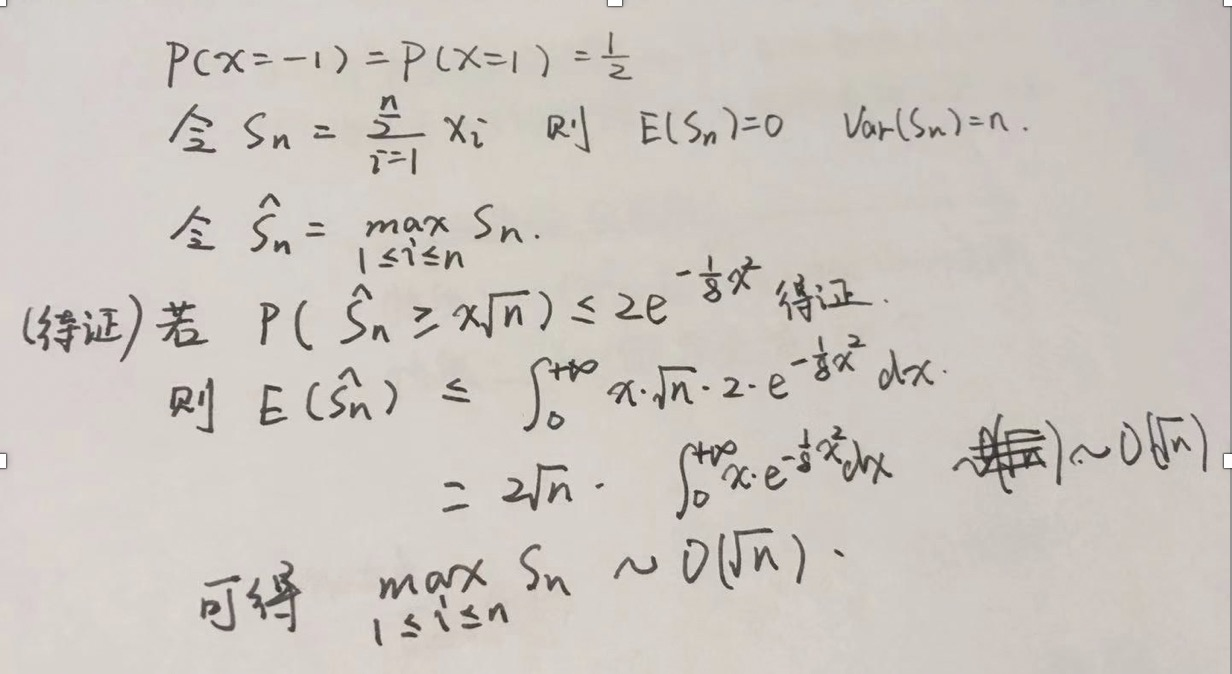 P(x=-1) = P(x=1) = 1/2
令 Sn = Σ_{i=1}^{n} xi 则 E(Sn)=0 Var(Sn)=n.
令 Ŝn = max_{1≤i≤n} Sn.
(待证) 若 P( Ŝn ≥ x√n ) ≤ 2e^{-1/8 x²} 得证.
则 E(Ŝn) ≤ ∫_0^{+∞} x·√n·2·e^{-1/8 x²} dx.
= 2√n · ∫_0^{+∞} x·e^{-1/8 x²} dx ~ O(√n)
可得 max_{1≤i≤n} Sn ~ O(√n).